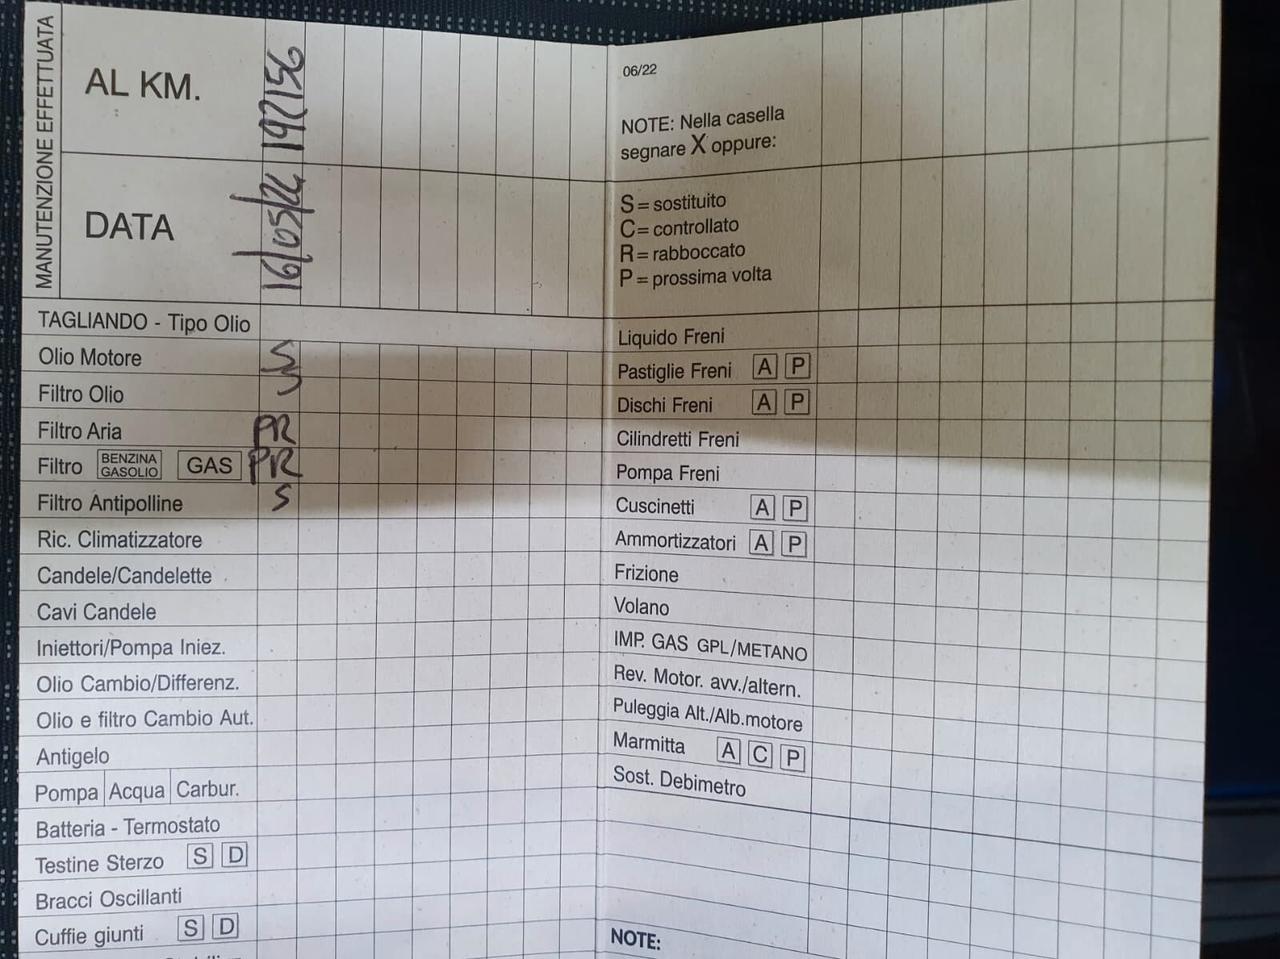 MANUTENZIONE EFFETTUATA
AL KM. 192156
DATA 16/05/24
TAGLIANDO - Tipo Olio
Olio Motore S
Filtro Olio S
Filtro Aria PR
Filtro BENZINA GASOLIO GAS PR
Filtro Antipolline S
Ric. Climatizzatore
Candele/Candelette
Cavi Candele
Iniettori/Pompa Iniez.
Olio Cambio/Differenz.
Olio e filtro Cambio Aut.
Antigelo
Pompa Acqua Carbur.
Batteria - Termostato
Testine Sterzo S D
Bracci Oscillanti
Cuffie giunti S D
06/22
NOTE: Nella casella
segnare X oppure:
S = sostituito
C = controllato
R = rabboccato
P = prossima volta
Liquido Freni
Pastiglie Freni A P
Dischi Freni A P
Cilindretti Freni
Pompa Freni
Cuscinetti A P
Ammortizzatori A P
Frizione
Volano
IMP. GAS GPL/METANO
Rev. Motor. avv./altern.
Puleggia Alt./Alb.motore
Marmitta A C P
Sost. Debimetro
NOTE: